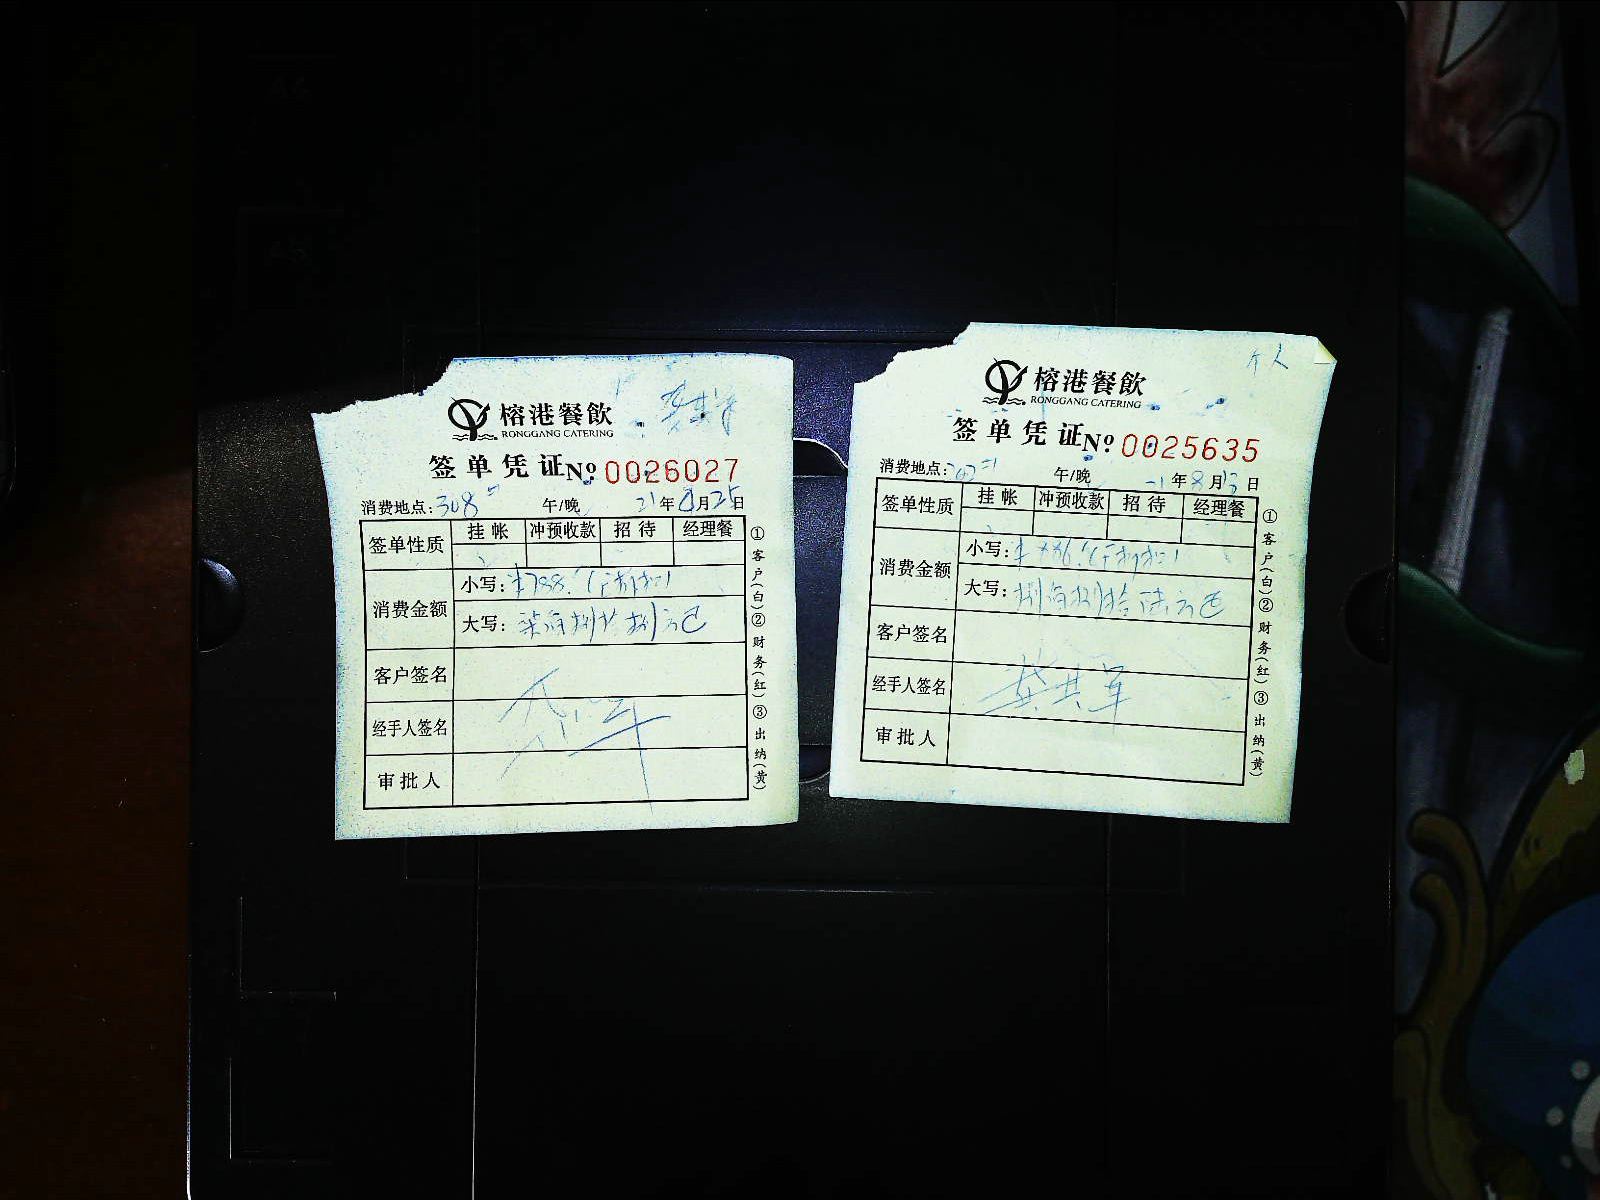 榕港餐飲
RONGGANG CATERING
签单凭证№:0026027
消费地点:308 午/晚 21年8月25日
签单性质 挂帐 冲预收款 招待 经理餐
消费金额 小写:¥788.
大写:柒佰捌拾捌元
客户签名
经手人签名
审批人
①客户(白)②财务(红)③出纳(黄)
个人
榕港餐飲
RONGGANG CATERING
签单凭证№:0025635
消费地点: 午/晚 年8月13日
签单性质 挂帐 冲预收款 招待 经理餐
消费金额 小写:¥886.
大写:捌佰捌拾陆元
客户签名
经手人签名 龚共军
审批人
①客户(白)②财务(红)③出纳(黄)